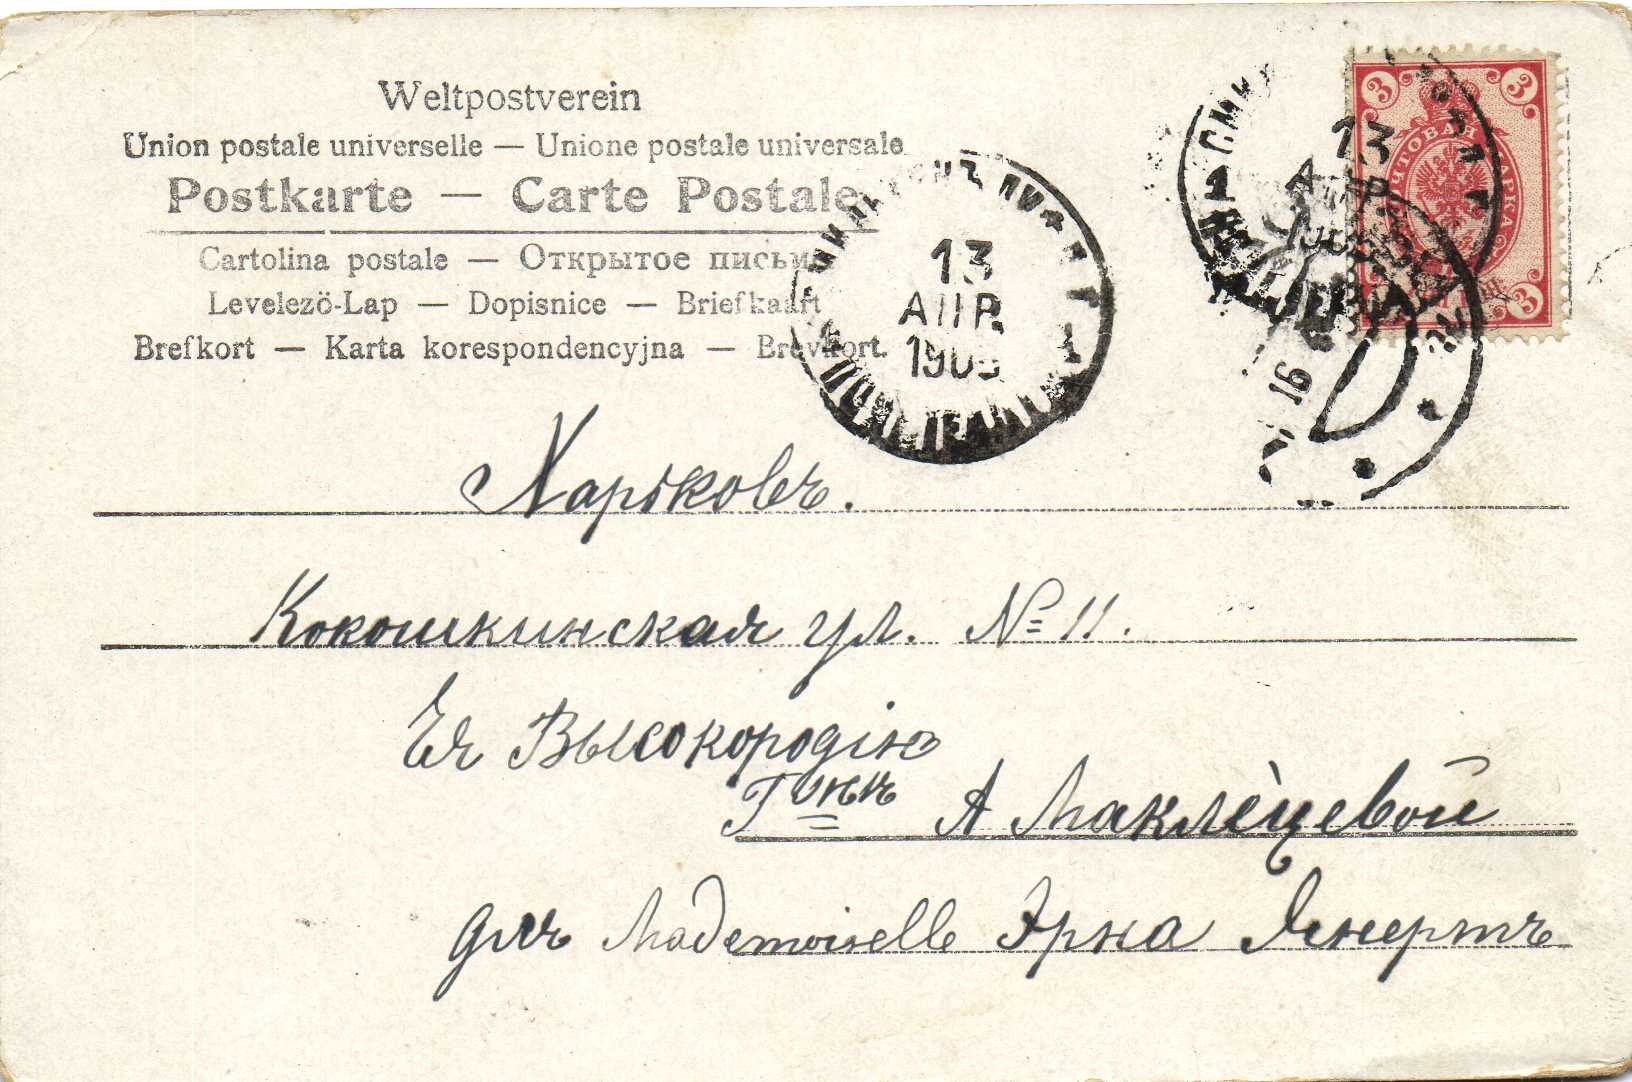 Weltpostverein
Union postale universelle — Unione postale universale
Postkarte — Carte Postale
Cartolina postale — Открытое письмо
Levelezö-Lap — Dopisnice — Briefkaart
Brefkort — Karta korespondencyjna — Brevkort.
3 3
13
АПР.
3
13
АПР.
190
16
22
Харьковъ.
Кокошкинская ул. № 11.
Ея Высокородію
А Маклецевой
для Mademoiselle Эрна Янертъ